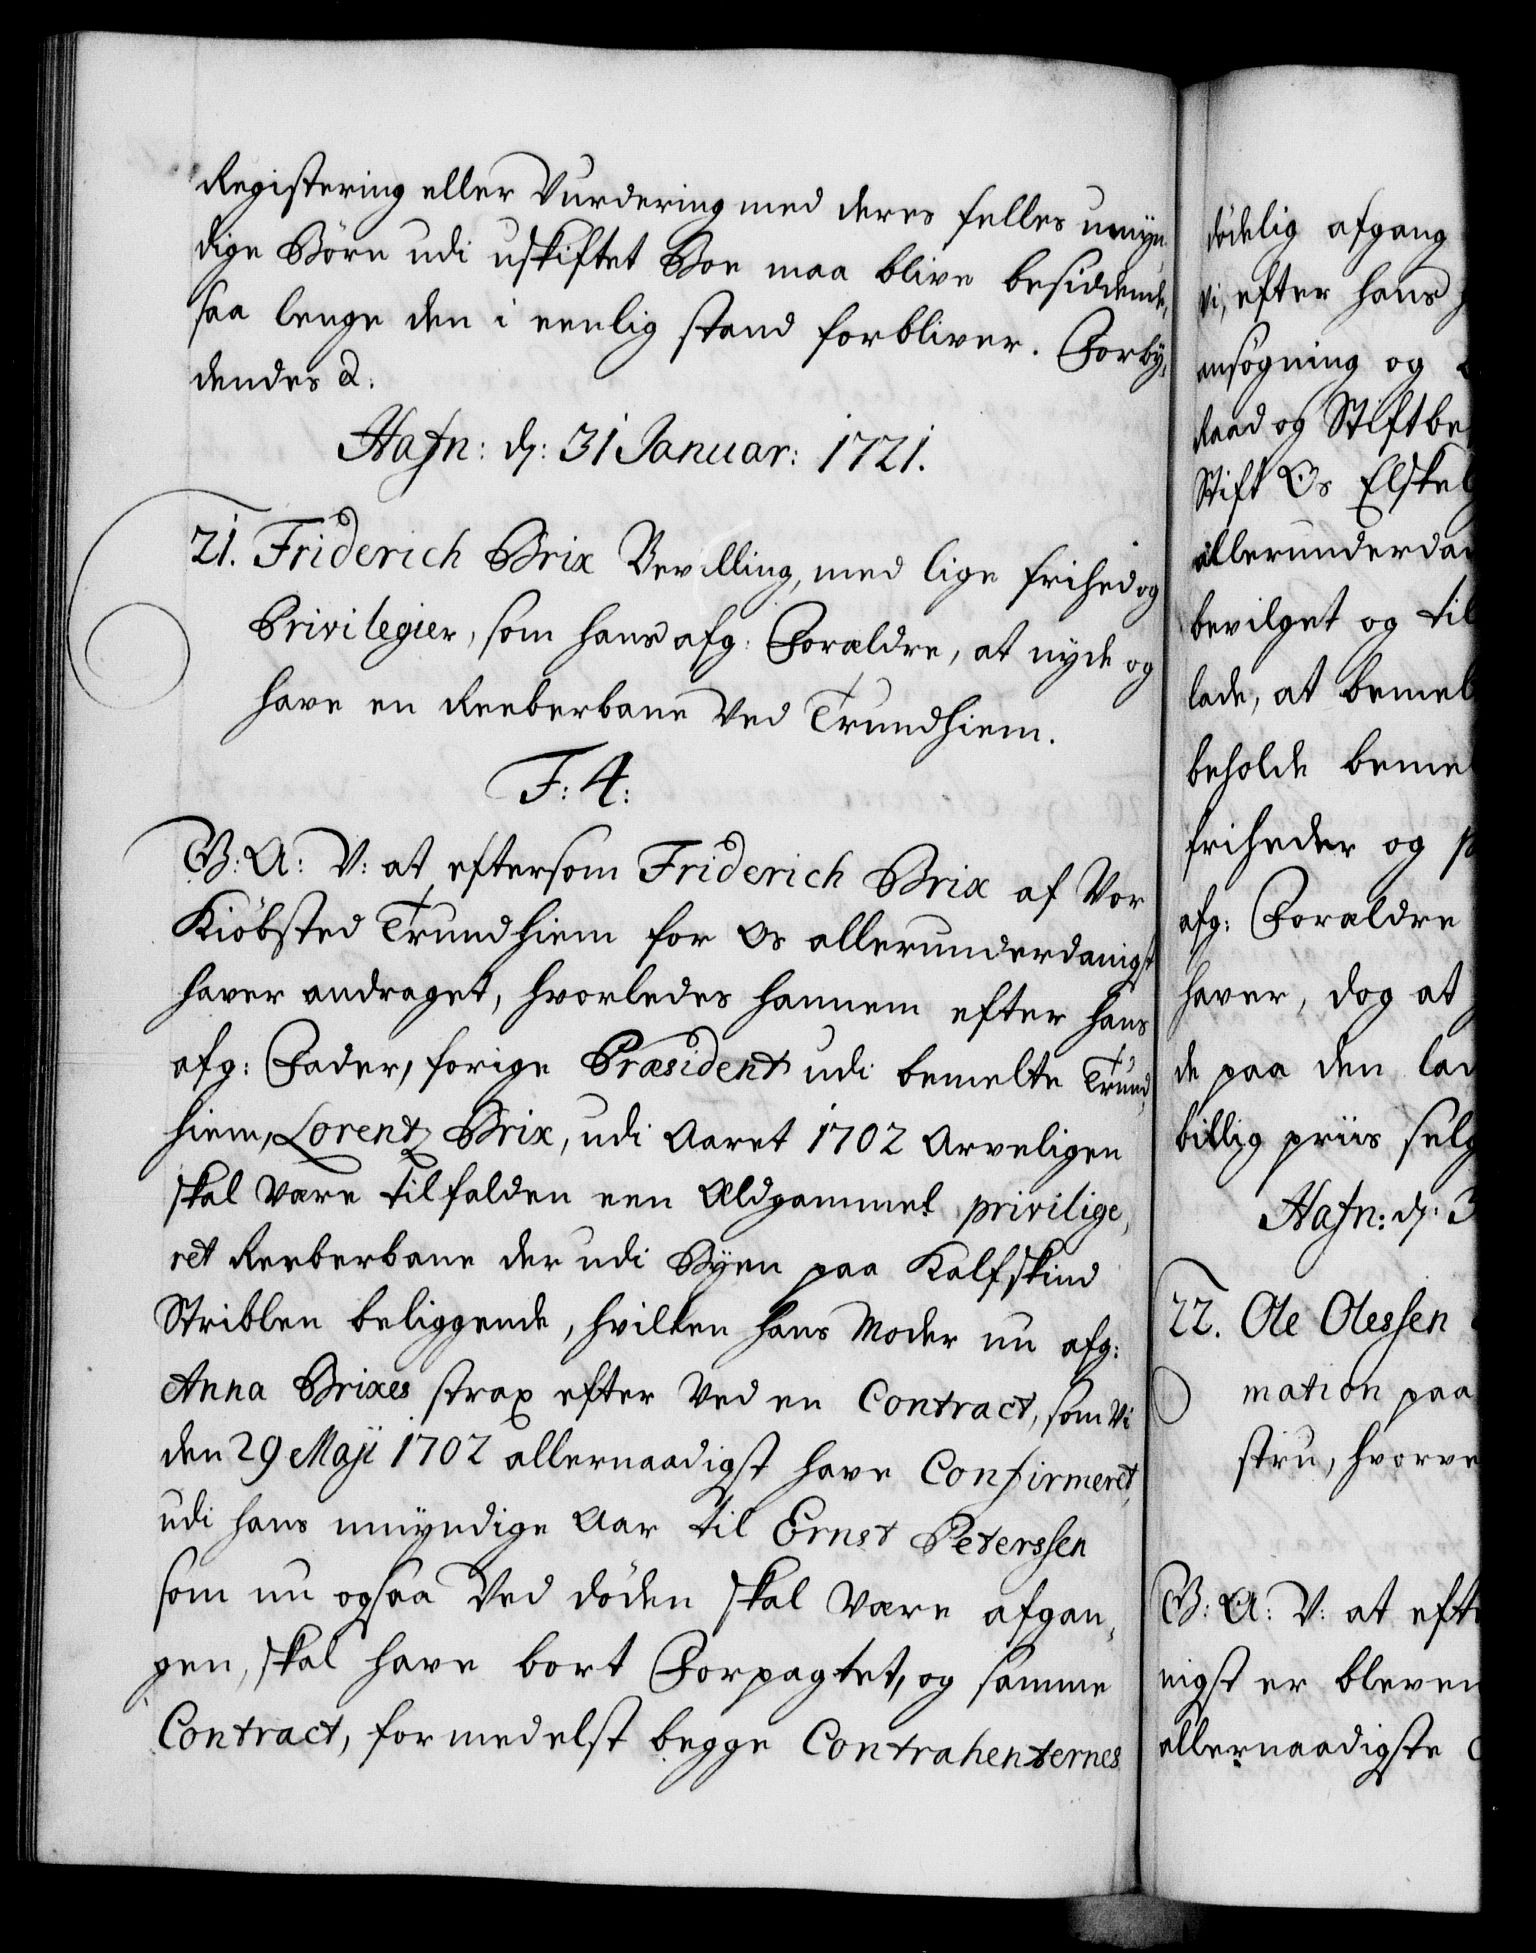 Registering eller Vurdering med deres felles umyn-
dige Börn udi uskiftet Boe maa blive besiddende,
saa lenge den i eenlig stand forbliver. Forby,
dendes &.
Hafn: d: 31 Januar: 1721.
21. Friderich Brix Bevilling, med lige frihed og
Privilegier, som hans afg: Forældre, at nyde og
have en Reeberbane Ved Trundhiem.
F: 4:
G: A: V: at eftersom Friderich Brix af Vor
Kiöbsted Trundhiem for Os allerunderdanigst
haver andraget, hvorledes hannem efter hans
afg: Fader, forige Præsident udi bemelte Trund,
hiem, Lorentz Brix, udi Aaret 1702 Arveligen
skal Være tilfalden een Ældgammel privilige,
ret Reeberbane der udi Byen paa Kalfskind
Striblen beliggende, hvilken hans Moder nu afg:
Anna Brixes strax efter Ved en Contract, som Vi
den 29 Maji 1702 allernaadigst have Confirmeret,
udi hans umyndige Aar til Ernst Peterssen
som nu ogsaa Ved döden skal Være afgan,
gen, skal have bort Forpagtet, og samme
Contract, formedelst begge Contrahenternes
dödelig afgang
Vi, efter hans
ansögning og
Raad og Stiftbe
Stift Os Elskel
allerunderdan
bevilget og til
lade, at bemel
beholde bemel
friheder og p
afg: Forældre
haver, dog at
de paa den lad
billig priis selg
Hafn: d: 3
22. Ole Olessen
mation paa
stru, hvorve
G: A: V: at efte
nigst er bleven
allernaadigste C